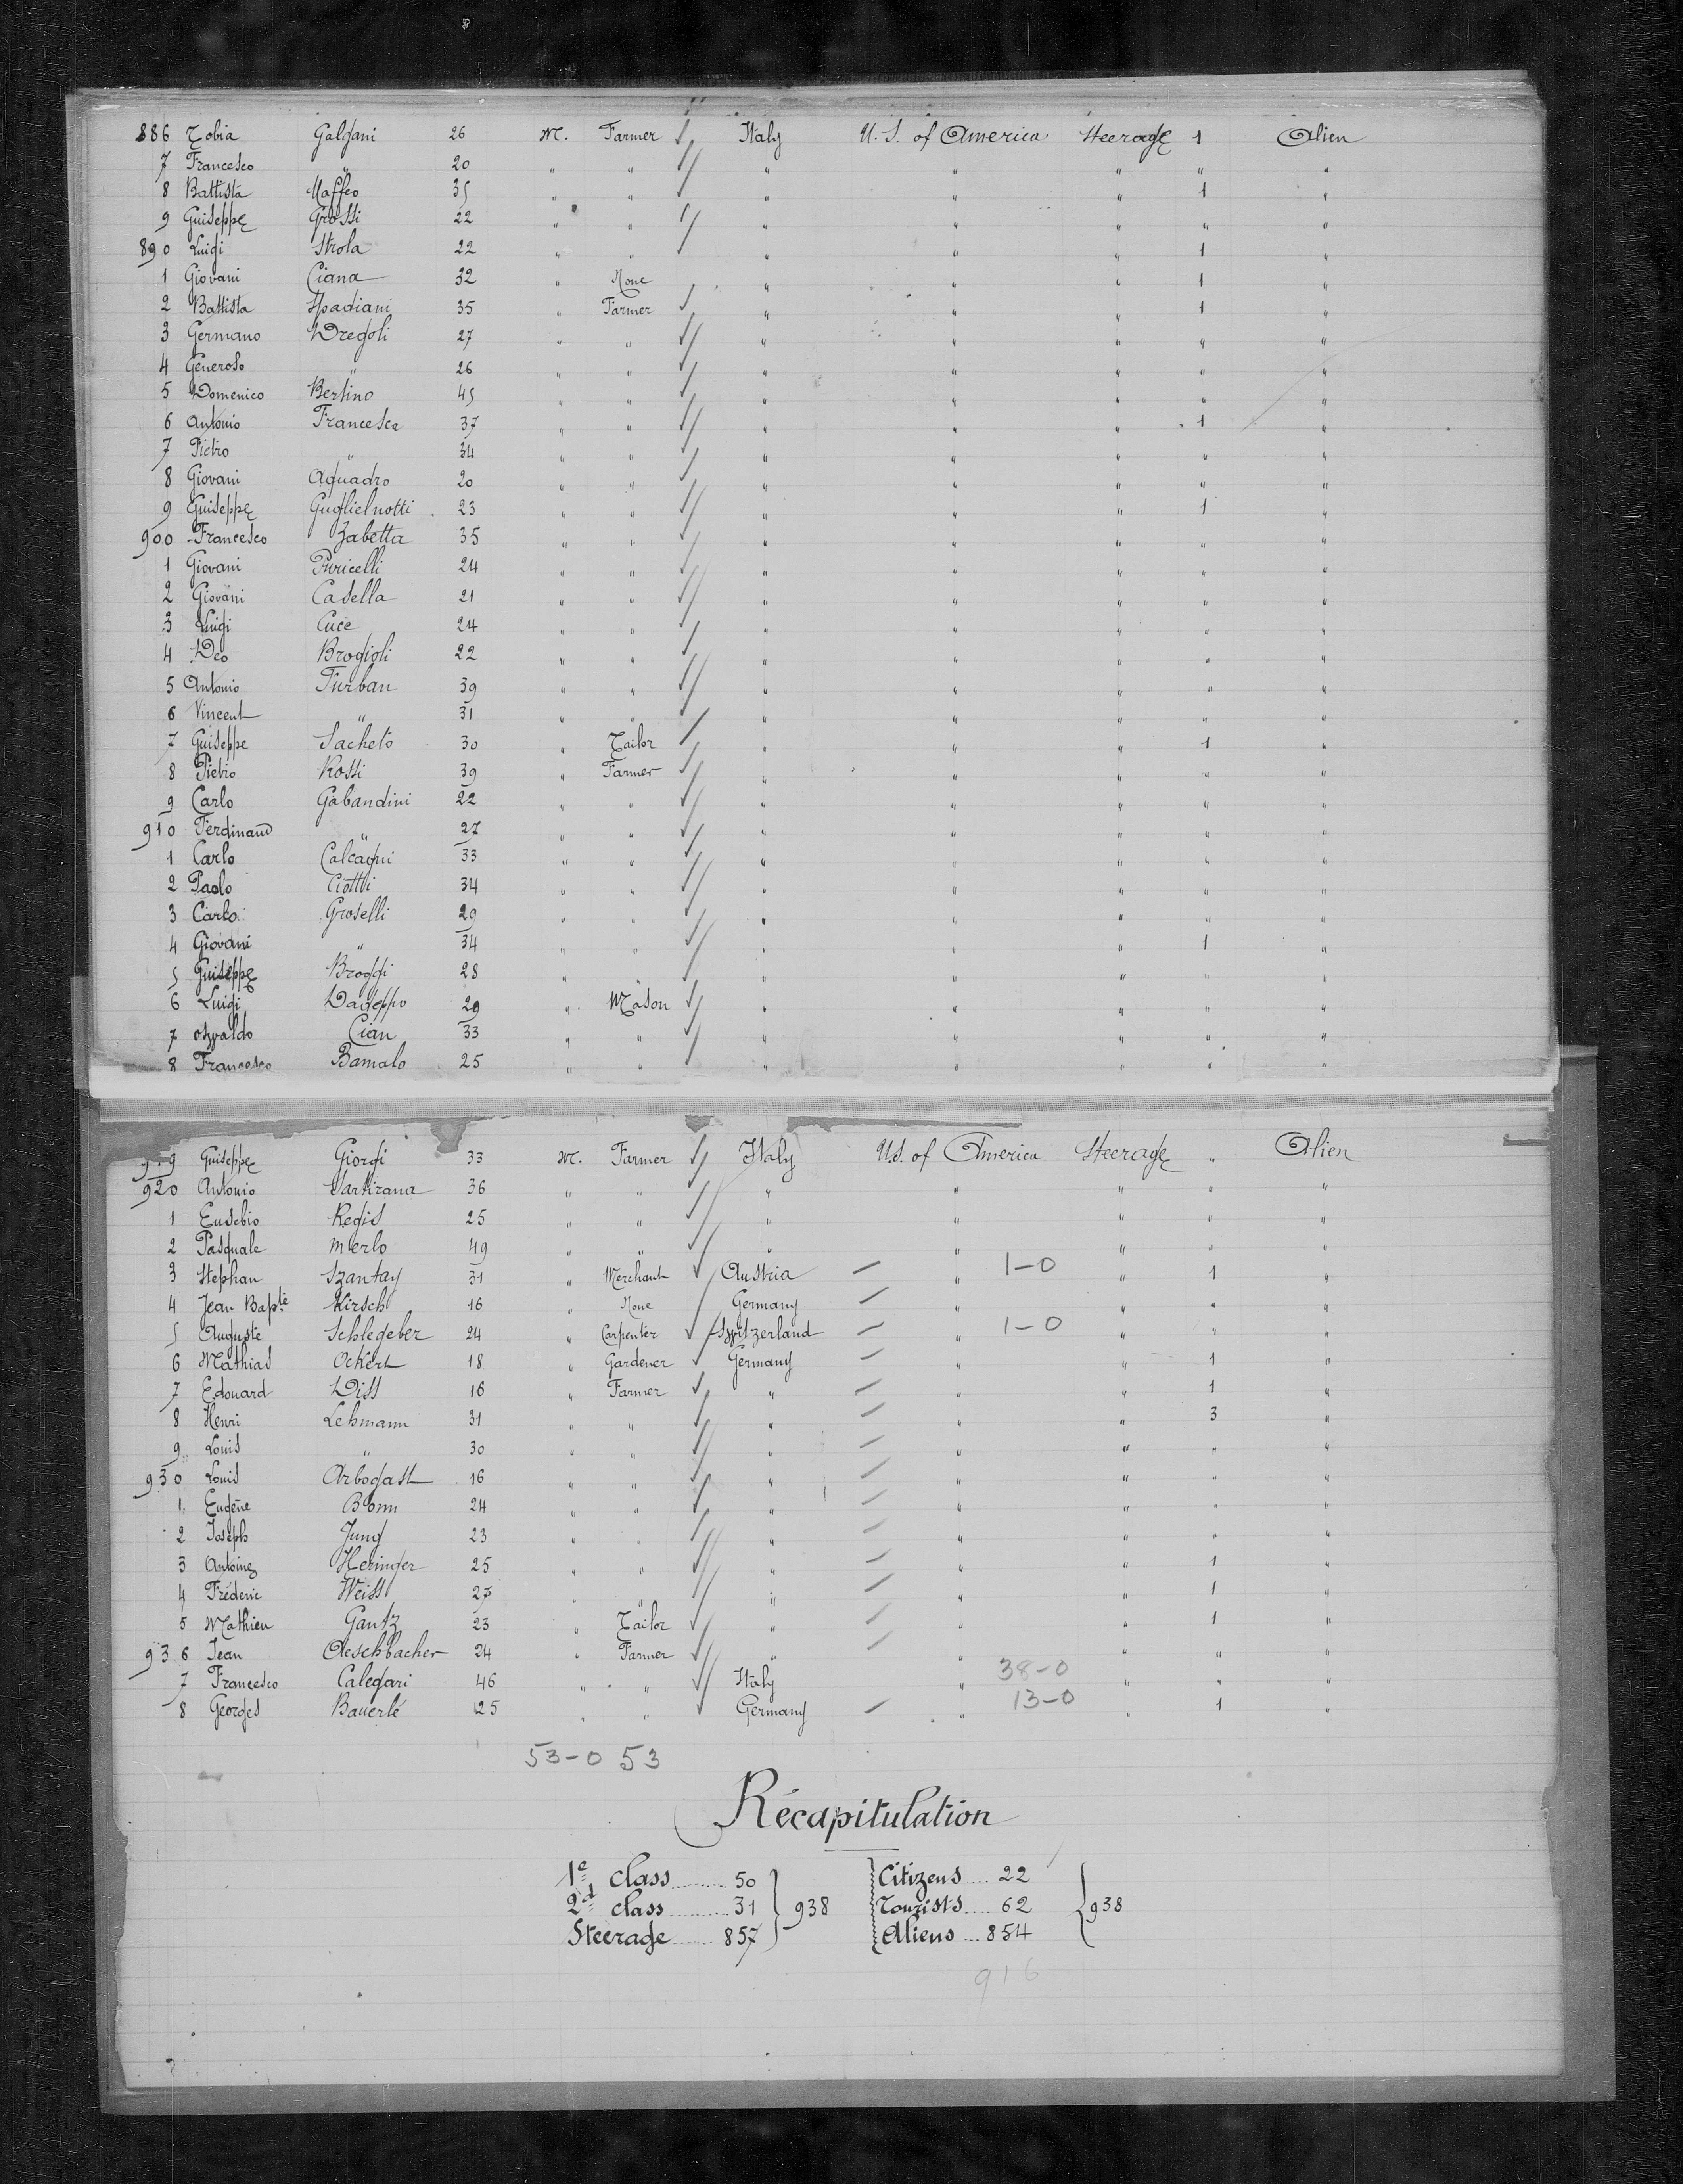 886 Tobia Galgani 26 M. Farmer Italy U. S. of America Steerage 1 Alien
7 Francesco " 20 " " " " " " "
8 Battista Maffeo 35 " " " " " 1 "
9 Guiseppe Grossi 22 " " " " " " "
890 Luigi Strola 22 " " " " " 1 "
1 Giovani Ciana 32 " None " " " 1 "
2 Battista Spadiani 35 " Farmer " " " 1 "
3 Germano Dregoli 27 " " " " " " "
4 Generoso " 26 " " " " " " "
5 Domenico Bertino 45 " " " " " " "
6 Antonio Francesca 37 " " " " " 1 "
7 Pietro " 34 " " " " " " "
8 Giovani Aquadro 20 " " " " " " "
9 Guiseppe Guglielnotti 23 " " " " " 1 "
900 Francesco Zabetta 35 " " " " " " "
1 Giovani Puricelli 24 " " " " " " "
2 Giovani Casella 21 " " " " " " "
3 Luigi Cuce 24 " " " " " " "
4 Deo Brogioli 22 " " " " " " "
5 Antonio Turban 39 " " " " " " "
6 Vincent " 31 " " " " " " "
7 Guiseppe Sacheto 30 " Tailor " " " 1 "
8 Pietro Rossi 39 " Farmer " " " " "
9 Carlo Gabandini 22 " " " " " " "
910 Ferdinand " 27 " " " " " " "
1 Carlo Calcagni 33 " " " " " " "
2 Paolo Ciotti 34 " " " " " " "
3 Carlo Groselli 29 " " " " " " "
4 Giovani " 34 " " " " " 1 "
5 Guiseppe Broggi 28 " " " " " " "
6 Luigi Dageppo 29 " Mason " " " " "
7 Osvaldo Cian 33 " " " " " " "
8 Francesco Bamalo 25 " " " " " " "
919 Guiseppe Giorgi 33 M. Farmer Italy U.S. of America Steerage " Alien
920 Antonio Sartirana 36 " " " " " " "
1 Eusebio Regis 25 " " " " " " "
2 Pasquale Merlo 49 " " " " " " "
3 Stephan Szantay 31 " Merchant Austria " 1-0 " 1 "
4 Jean Bapte Kirsch 16 " None Germany " " " "
5 Auguste Schlegeber 24 " Carpenter Switzerland " 1-0 " " "
6 Mathias Ockert 18 " Gardener Germany " " 1 "
7 Edouard Diss 16 " Farmer " " " 1 "
8 Henri Lehmann 31 " " " " " 3 "
9 Louis " 30 " " " " " " "
930 Louis Arbogast 16 " " " " " " "
1 Eugène Bonn 24 " " " " " " "
2 Joseph Jung 23 " " " " " " "
3 Antoine Heringer 25 " " " " " 1 "
4 Fréderic Weiss 25 " " " " " 1 "
5 Mathieu Gantz 23 " Tailor " " " 1 "
936 Jean Aeschbacher 24 " Farmer " " " " "
7 Francesco Calegari 46 " " Italy " 38-0 " " "
8 Georges Bauerlé 25 " " Germany " 13-0 " 1 "
53-0 53
Récapitulation
1e class 50 Citizens 22
2d class 31 938 Tourists 62 938
Steerage 857 Aliens 854
916